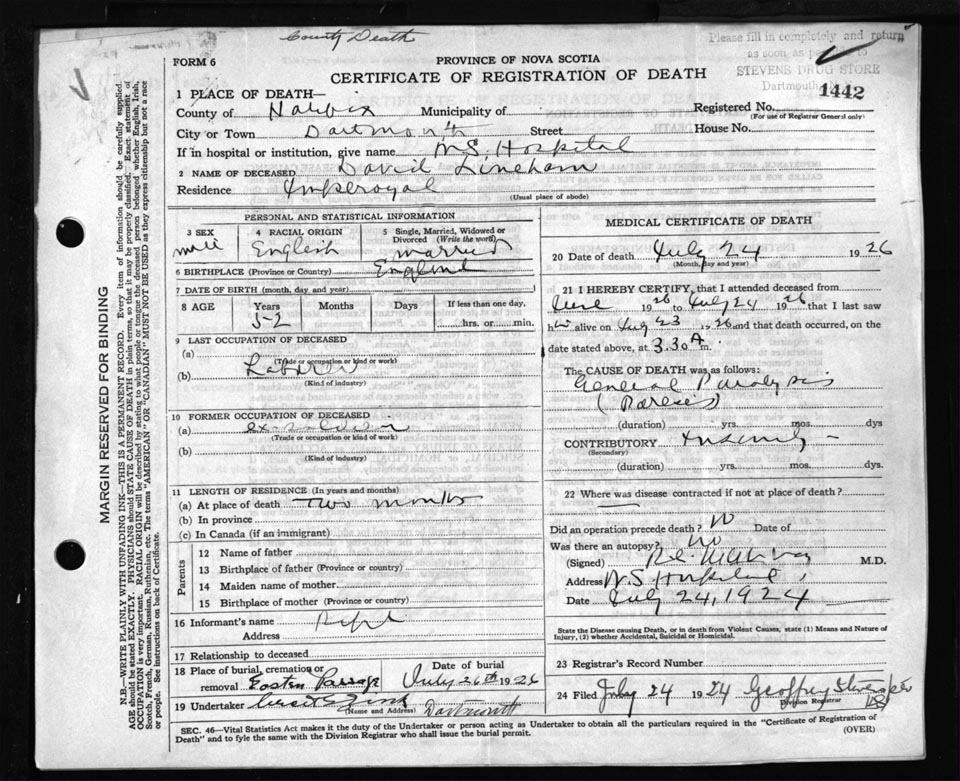 County Death
Please fill in completely and return
as soon as possible to
STEVENS DRUG STORE
Dartmouth
1442
FORM 6
PROVINCE OF NOVA SCOTIA
CERTIFICATE OF REGISTRATION OF DEATH
1 PLACE OF DEATH—
County of Halifax Municipality of
Registered No.
(For use of Registrar General only)
City or Town Dartmouth Street
House No.
If in hospital or institution, give name N.S. Hospital
2 NAME OF DECEASED David Lineham
Residence Imperoyal
(Usual place of abode)
PERSONAL AND STATISTICAL INFORMATION
3 SEX
male
4 RACIAL ORIGIN
English
5 Single, Married, Widowed or Divorced (Write the word)
married
6 BIRTHPLACE (Province or Country) England
7 DATE OF BIRTH (month, day and year)
8 AGE
Years
52
Months
Days
If less than one day,
hrs. or min.
9 LAST OCCUPATION OF DECEASED
(a)
(Trade or occupation or kind of work)
(b) Laborer
(Kind of industry)
10 FORMER OCCUPATION OF DECEASED
(a) ex-soldier
(Trade or occupation or kind of work)
(b)
(Kind of industry)
11 LENGTH OF RESIDENCE (In years and months)
(a) At place of death Two months
(b) In province
(c) In Canada (if an immigrant)
Parents
12 Name of father
13 Birthplace of father (Province or country)
14 Maiden name of mother
15 Birthplace of mother (Province or country)
16 Informant's name
Address
17 Relationship to deceased
18 Place of burial, cremation or
removal Eastern Passage
Date of burial
July 26th 1926
19 Undertaker
(Name and Address) Dartmouth
MEDICAL CERTIFICATE OF DEATH
20 Date of death July 24 1926
(Month, day and year)
21 I HEREBY CERTIFY, that I attended deceased from
June 1926 to July 24 1926 that I last saw
him alive on July 23 1926 and that death occurred, on the
date stated above, at 3.30 A m.
The CAUSE OF DEATH was as follows:
General Paralysis
(Paresis)
(duration) yrs. mos. dys
CONTRIBUTORY Insanity -
(Secondary)
(duration) yrs. mos. dys.
22 Where was disease contracted if not at place of death?
Did an operation precede death? No Date of
Was there an autopsy? No
(Signed) M.D.
Address N.S. Hospital
Date July 24, 1924
State the Disease causing Death, or in death from Violent Causes, state (1) Means and Nature of
Injury, (2) whether Accidental, Suicidal or Homicidal.
23 Registrar's Record Number
24 Filed July 24 1924 Geoffrey Stevens
Division Registrar
SEC. 46—Vital Statistics Act makes it the duty of the Undertaker or person acting as Undertaker to obtain all the particulars required in the "Certificate of Registration of
Death" and to fyle the same with the Division Registrar who shall issue the burial permit.
(OVER)
MARGIN RESERVED FOR BINDING
N.B.—WRITE PLAINLY WITH UNFADING INK—THIS IS A PERMANENT RECORD. Every item of information should be carefully supplied.
AGE should be stated EXACTLY. PHYSICIANS should STATE CAUSE OF DEATH in plain terms, so that it may be properly classified. Exact statement of
OCCUPATION is very important. RACIAL ORIGIN will be described by stating to what people or tongue the deceased person belonged whether English, Irish,
Scotch, French, German, Russian, Ruthenian, etc. The terms "AMERICAN" or "CANADIAN" MUST NOT BE USED as they express citizenship but not a race
or people. See instructions on back of Certificate.